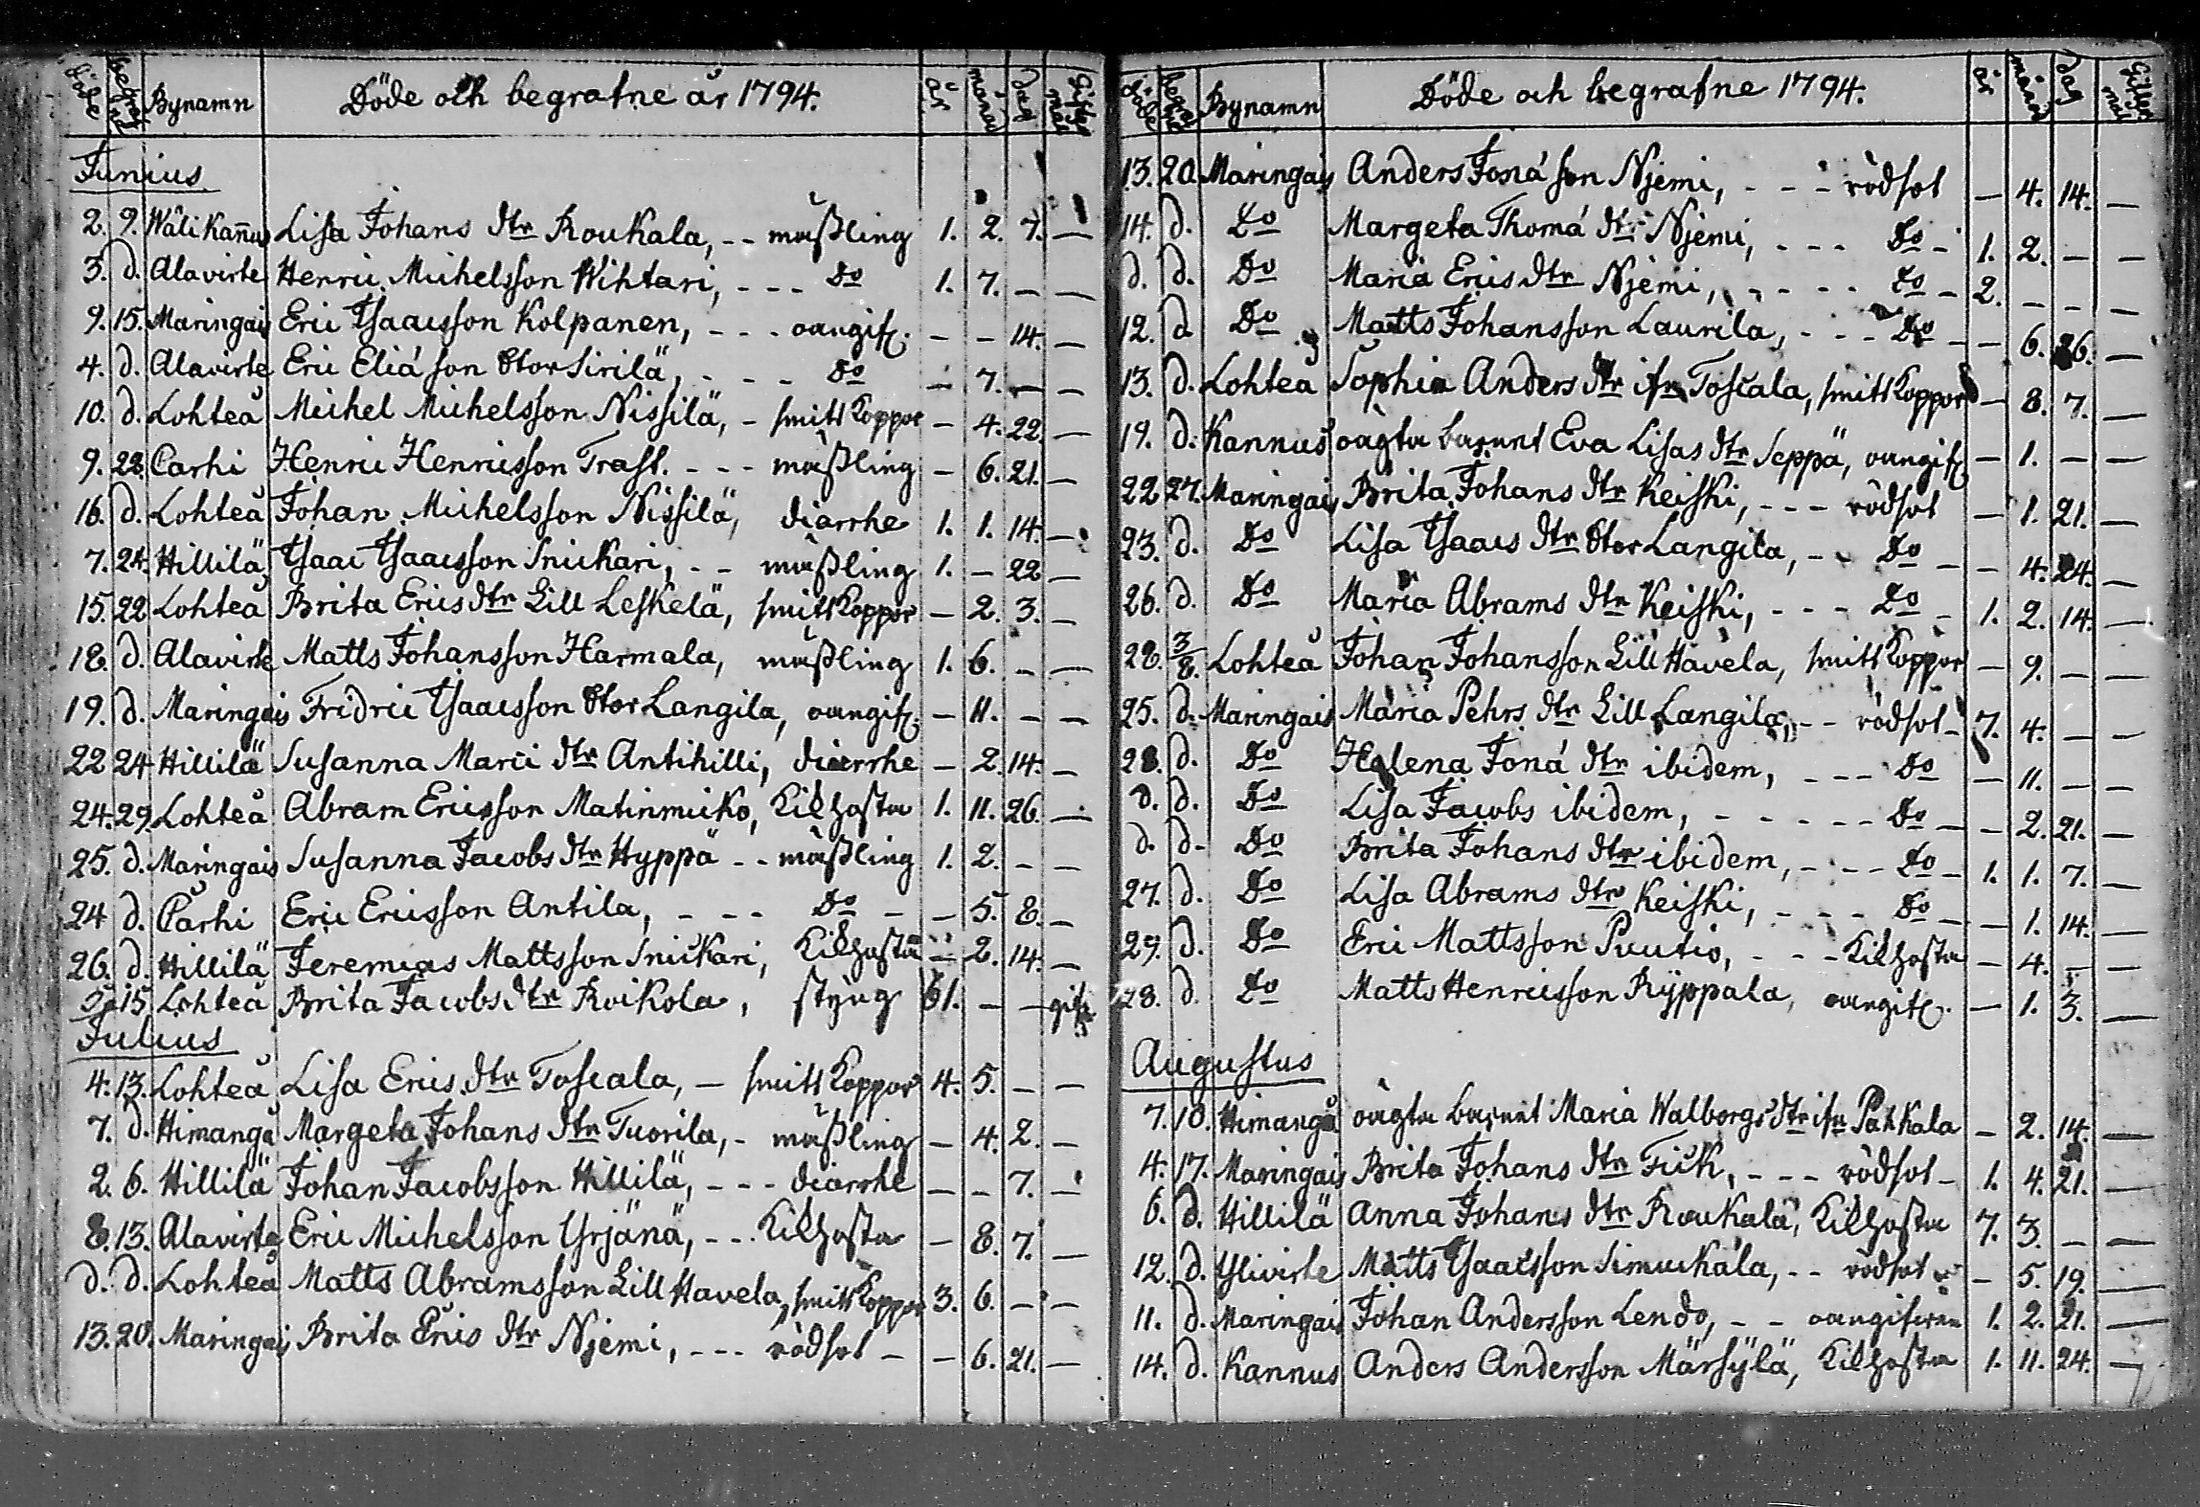 döde begrafne Bynamn Döde och begrafne år 1794. år månad Dag Giftas mål
Junius
2. 9. Wälikan̄us Lisa Johans dtr Roukala, -- mäßling 1. 2. 7. —
3. d. Alavirte Henric Michelsson Wihtari, --- Do 1. 7. — —
9. 15. Maringais Eric Isaacsson Kolpanen, --- oangifv. — — 14. —
4. d. Alavirte Eric Eliæ son StorSirilä, --- Do — 7. — —
10. d. Lohteå Michel Michelsson Nissilä, - smittkoppor — 4. 22. —
9. 22. Carhi Henric Henricsson Trast. --- mäßling — 6. 21. —
16. d. Lohteå Johan Michelsson Nissilä, diarrhe 1. 1. 14. —
7. 24. Hillilä Isaac Isaacsson Snickari, -- mäßling 1. — 22 —
15. 22 Lohteå Brita Erics dtr Lill Leskelä, smittkoppor — 2. 3. —
18. d. Alavirte Matts Johansson Harmala, mäßling 1. 6. — —
19. d. Maringais Fridric Isaacsson StorLangila, oangifv. — 11. — —
22 24 Hillilä Susanna Marci dtr Antihilli, diarrhe — 2. 14. —
24. 29. Lohteå Abram Ericsson Matinmicko, Kikhosta 1. 11. 26. —
25. d. Maringais Susanna Jacobs dtr Hyppä -- mäßling 1. 2. — —
24 d. Carhi Eric Ericsson Antila, --- Do — 5. 8. —
26. d. Hillilä Jeremias Mattsson Snickari, Kikhosta — 2. 14. —
5. 15. Lohteå Brita Jacobs dtr Roikola, styng 61. — — gift
Julius
4. 13. Lohteå Lisa Erics dtr Toscala, — smittkoppor 4. 5. — —
7. d. Himangå Margeta Johans dtr Tuorila, - mäßling — 4. 2. —
2. 6. Hillilä Johan Jacobsson Hillilä, --- diarrhe — — 7. —
8. 13. Alavirte Eric Michelsson Yrjänä, --- Kikhosta — 8. 7. —
d. d. Lohteå Matts Abramsson Lill Havela, smittkoppor 3. 6. — —
13. 20. Maringais Brita Erics dtr Njemi, --- rödsot — — 6. 21. —
döde begrafne Bynamn Döde och begrafne 1794. år månad Dag Giftas mål
13. 20. Maringais Anders Jonæ son Njemi, --- rödsot — 4. 14. —
14. d. Do Margeta Thomæ dtr Njemi, --- Do — 1. 2. — —
d. d. Do Maria Erics dtr Njemi, ---- Do — 2. — — —
12. d Do Matts Johansson Laurila, --- Do — — 6. 26. —
13. d. Lohteå Sophia Anders dtr ifrn Toscala, smittkoppor — 8. 7. —
19. d. Kannus oägta barnet Eva Lisas dtr Seppä, oangifv — 1. — —
22 27. Maringais Brita Johans dtr Keiski, --- rödsot — 1. 21. —
23. d. Do Lisa Isaacs dtr StorLangila, -- Do — — 4. 24. —
26. d. Do Maria Abrams dtr Keiski, --- Do — 1. 2. 14. —
28. 3/8. Lohteå Johan Johansson Lill Havela, smittkoppor — 9. — —
25. d. Maringais Maria Pehrs dtr Lill Langila, -- rödsot - 7. 4. — —
28. d. Do Helena Jonæ dtr ibidem, --- Do — 11. — —
d. d. Do Lisa Jacobs ibidem, ----- Do — — 2. 21. —
d. d. Do Brita Johans dtr ibidem, --- Do — 1. 1. 7. —
27. d. Do Lisa Abrams dtr Keiski, --- Do — — 1. 14. —
29. d. Do Eric Mattsson Puutio, --- Kikhosta — 4. — —
28. d. Do Matts Henricsson Ryppala, oangifv. — 1. 3. —
Augustus
7. 10. Himangå oägta barnet Maria Walborgs dtr ifrn Pahkala — 2. 14. —
4. 17. Maringais Brita Johans dtr Fick, --- rödsot - 1. 4. 21. —
6. d. Hillilä Anna Johans dtr Roukala, Kikhosta 7. 3. — —
12. d. Ylivirte Matts Isaacsson Simuckala, -- rödsot — 5. 19. —
11. d. Maringais Johan Andersson Lendo, -- oangifven 1. 2. 21. —
14. d. Kannus Anders Andersson Märsylä, Kikhosta 1. 11. 24. —